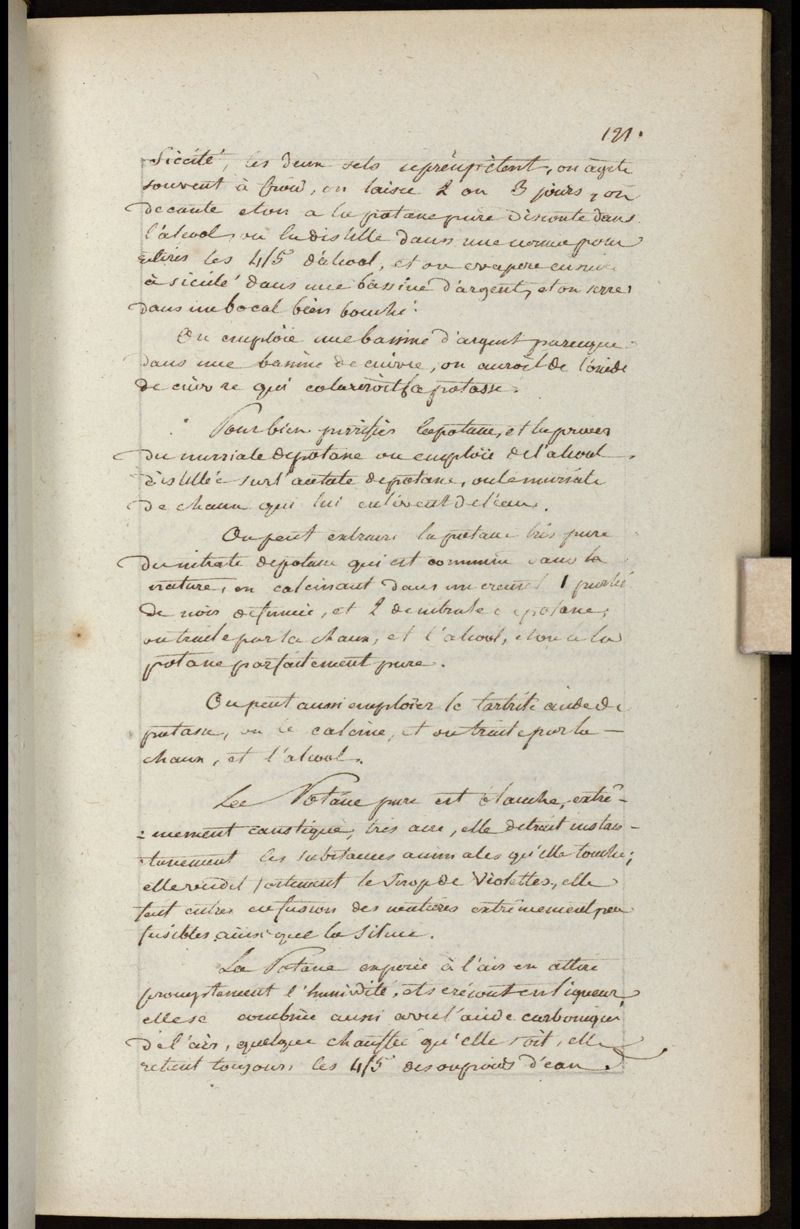 121.
Siccité, les deux sels se précipitent, on agite
souvent à froid, on laisse 2 ou 3 jours, on
decante et on a la potasse pure dissoute dans
l'alcool, on la distille dans une cornue pour
retirer les 4/5 d'alcool, et on evapore ensuite
à siccité dans une bassine d'argent, et on serre
dans un bocal bien bouché.
On emploïe une bassine d'argent parceque
dans une bassine de cuivre, on auroit de l'oxide
de cuivre qui coloreroit la potasse.
Pour bien purifier la potasse, et la priver
du muriate de potasse on emploïe de l'alcool
distillée sur l'acetate de potasse, ou le muriate
de chaux qui lui enlevent de l'eau.
On peut extraire la potasse très pure
du nitrate de potasse qui est commun dans la
nature, en calcinant dans un creuset 1 partie
de noir de fumée, et 2 de nitrate de potasse,
on traite par la chaux, et l'alcool, et on a la
potasse parfaitement pure.
On peut aussi emploïer le tartrite acide de
potasse, on le calcine, et on traite par la
chaux, et l'alcool.
La Potasse pure est blanche, extrê-
mement caustique, très acre, elle detruit instan-
tanement les substances animales qu'elle touche;
elle verdit fortement le Sirop de Violettes, elle
fait entrer en fusion des matieres extrêmement peu
fusibles, ainsi que la Silice.
La Potasse exposée à l'air en attire
promptement l'humidité, et se résout en liqueur,
elle se combine aussi avec l'acide carbonique
de l'air, quelque chauffée qu'elle soit, elle
retient toujours les 4/5 de son poids d'eau.